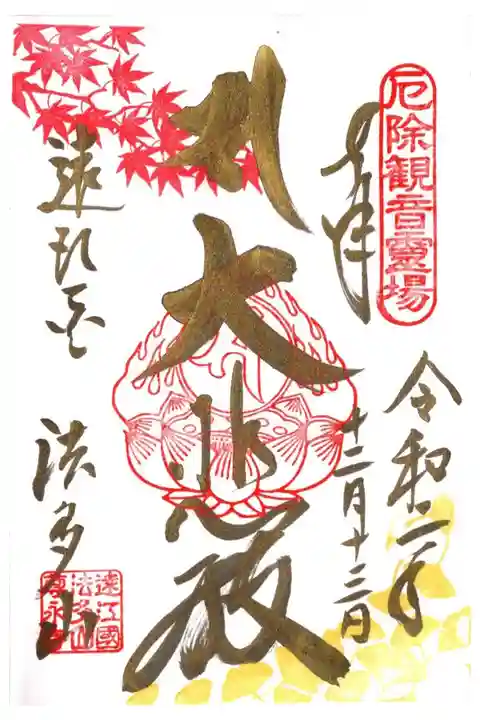 厄除観音靈場
奉拝
令和二年
十二月十三日
大悲殿
法多山
遠江國
法多山
尊永寺